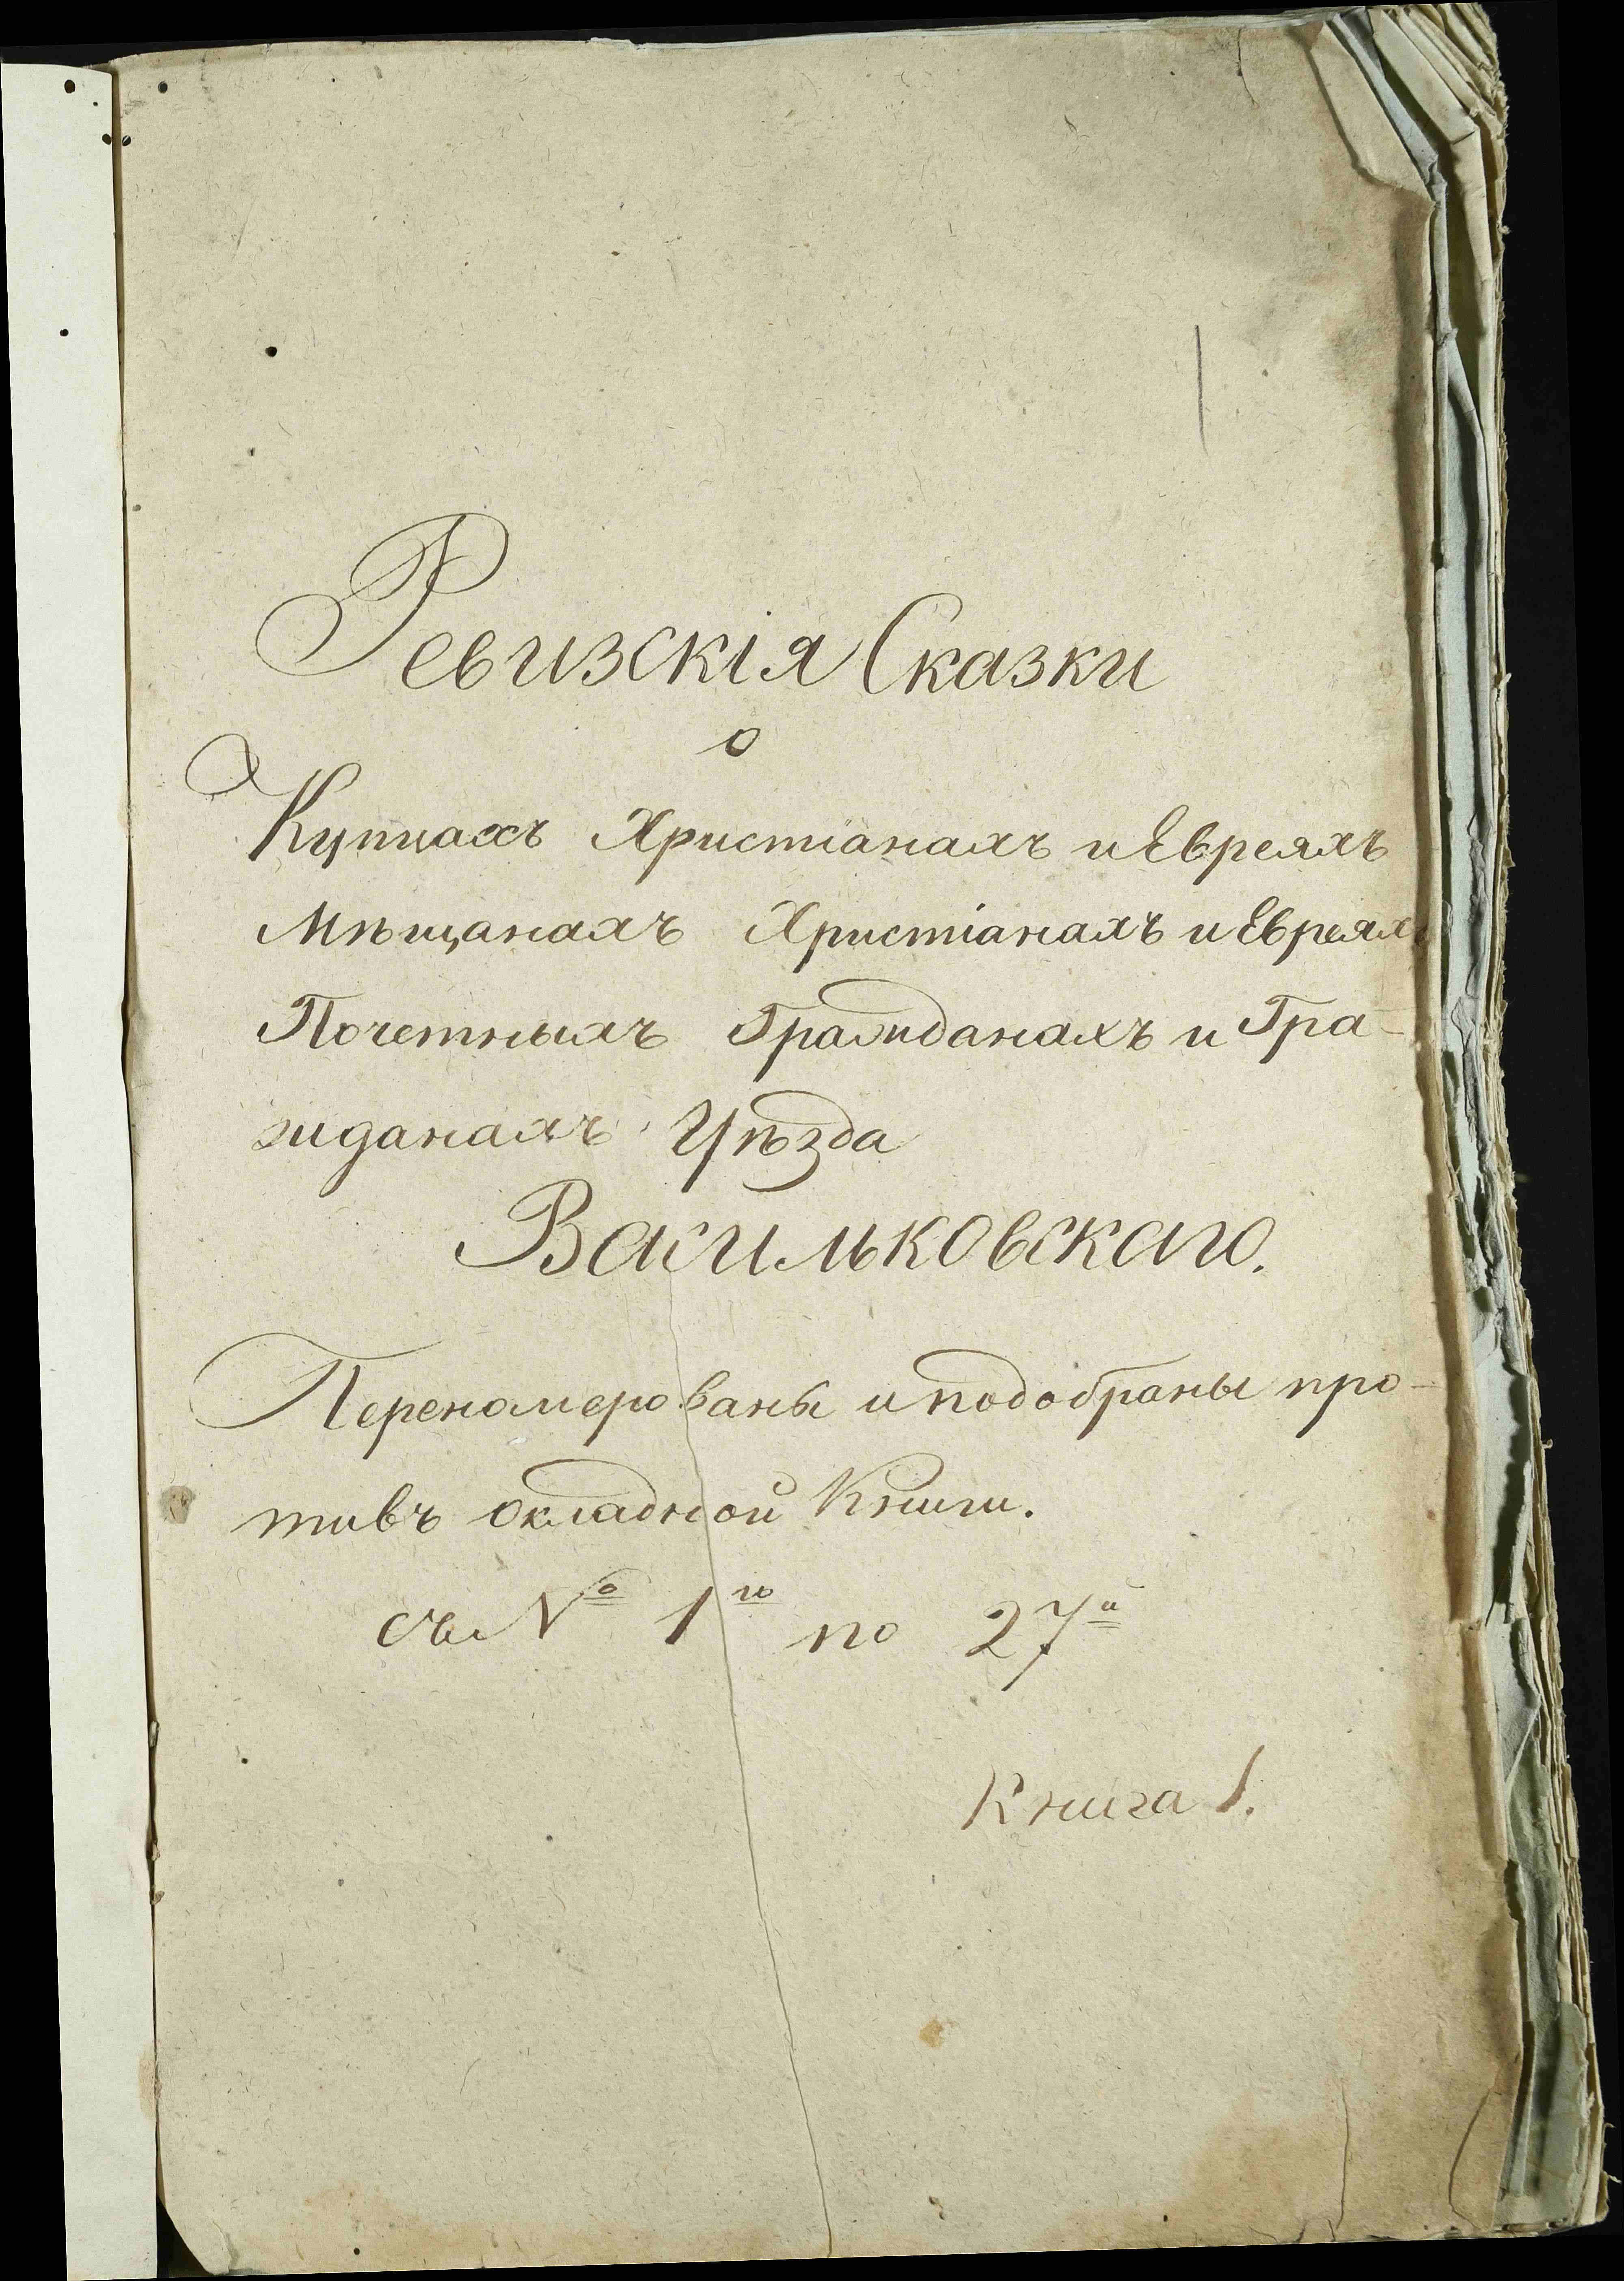 Ревизскія Сказки
о
Купцахъ Христіанахъ и Евреяхъ
Мѣщанахъ Христіанахъ и Евреяхъ
Почетныхъ Гражданахъ и Гра-
жданахъ Уѣзда
Васильковскаго.
Переномерованы и подобраны про-
тивъ окладной Книги.
съ № 1го по 27й
Книга 1.